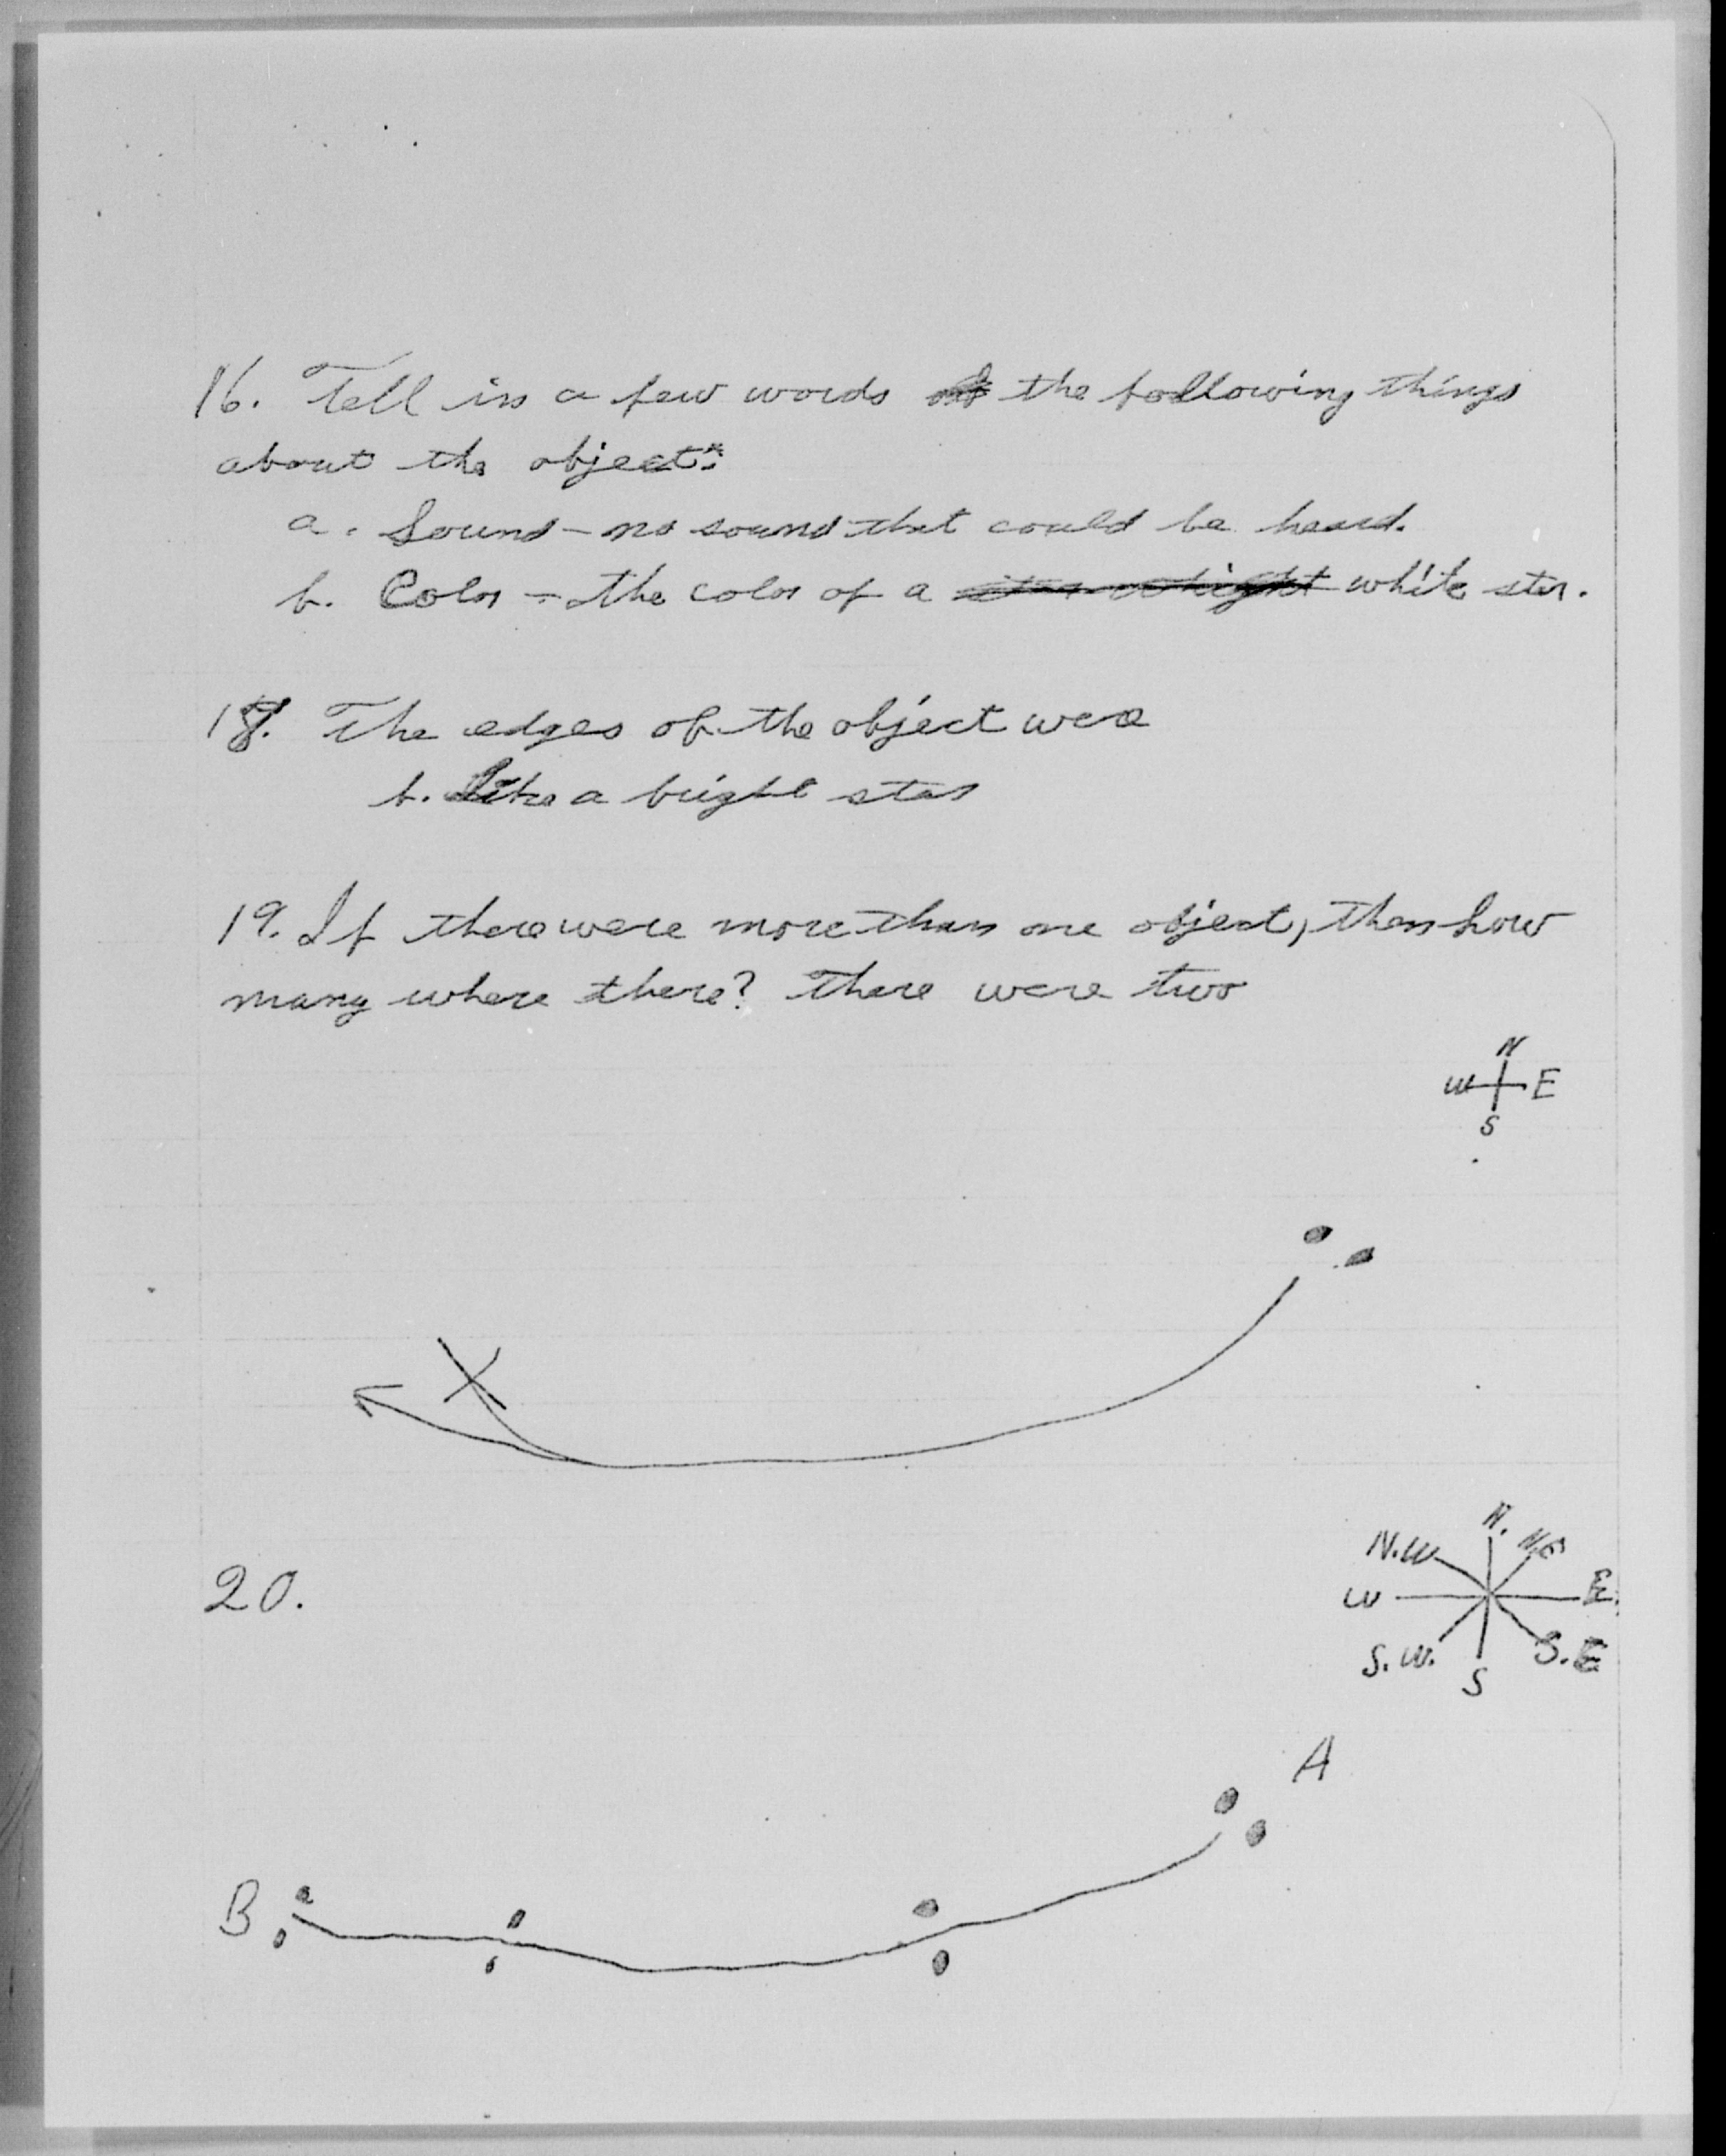 16. Tell in a few words the following things
about the object:
a. Sound - no sound that could be heard.
b. Color - the color of a white star.
18. The edges of the object were
b. Like a bright star
19. If there were more than one object, then how
many where there? There were two
N
W E
S
20.
N.
N.W N.E
W E.
S.W. S.E
S
A
B